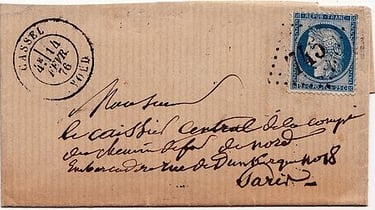 CASSEL
4E
14
FEVR.
76
NORD
REPUB. FRANC.
Monsieur
le caissier central de la comp
du chemin de fer du nord
Embarcadère rue de Dunkerque no 18
Paris